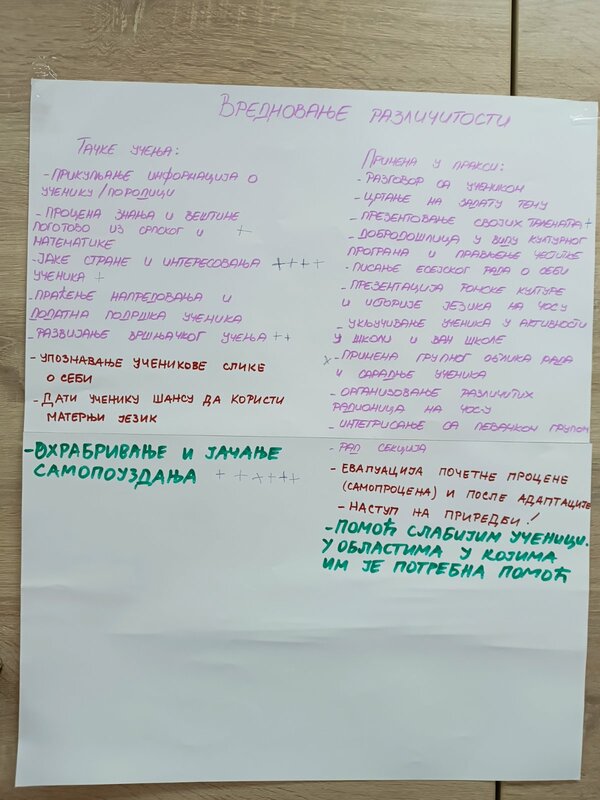 Вредновање различитости
Тачке учења:
- Прикупљање информација о
ученику / породици
- Процена знања и вештине
поготово из српског и +
математике
- Јаке стране и интересовања ++++
ученика +
- Праћење напредовања и
додатна подршка ученика
- Развијање вршњачког учења ++
- Упознавање ученикове слике
о себи
- Дати ученику шансу да користи
матерњи језик
- Охрабривање и јачање
самопоуздања +++++
Примена у пракси:
- Разговор са учеником
- Цртање на задату тему
- Презентовање својих талената +
- Добродошлица у виду културног
програма и прављење честитке
- Писање есејског рада о себи
- Презентација ромске културе
и историје језика на часу
- Укључивање ученика у активности
у школи и ван школе
x - Примена групног облика рада
и сарадње ученика
- Организовање различитих
радионица на часу
- Интегрисање са певачком групом
- Рад секција
- Евалуација почетне процене
(самопроцена) и после адаптације
- Наступ на приредби!
- Помоћ слабијим ученици.
у областима у којима
им је потребна помоћ